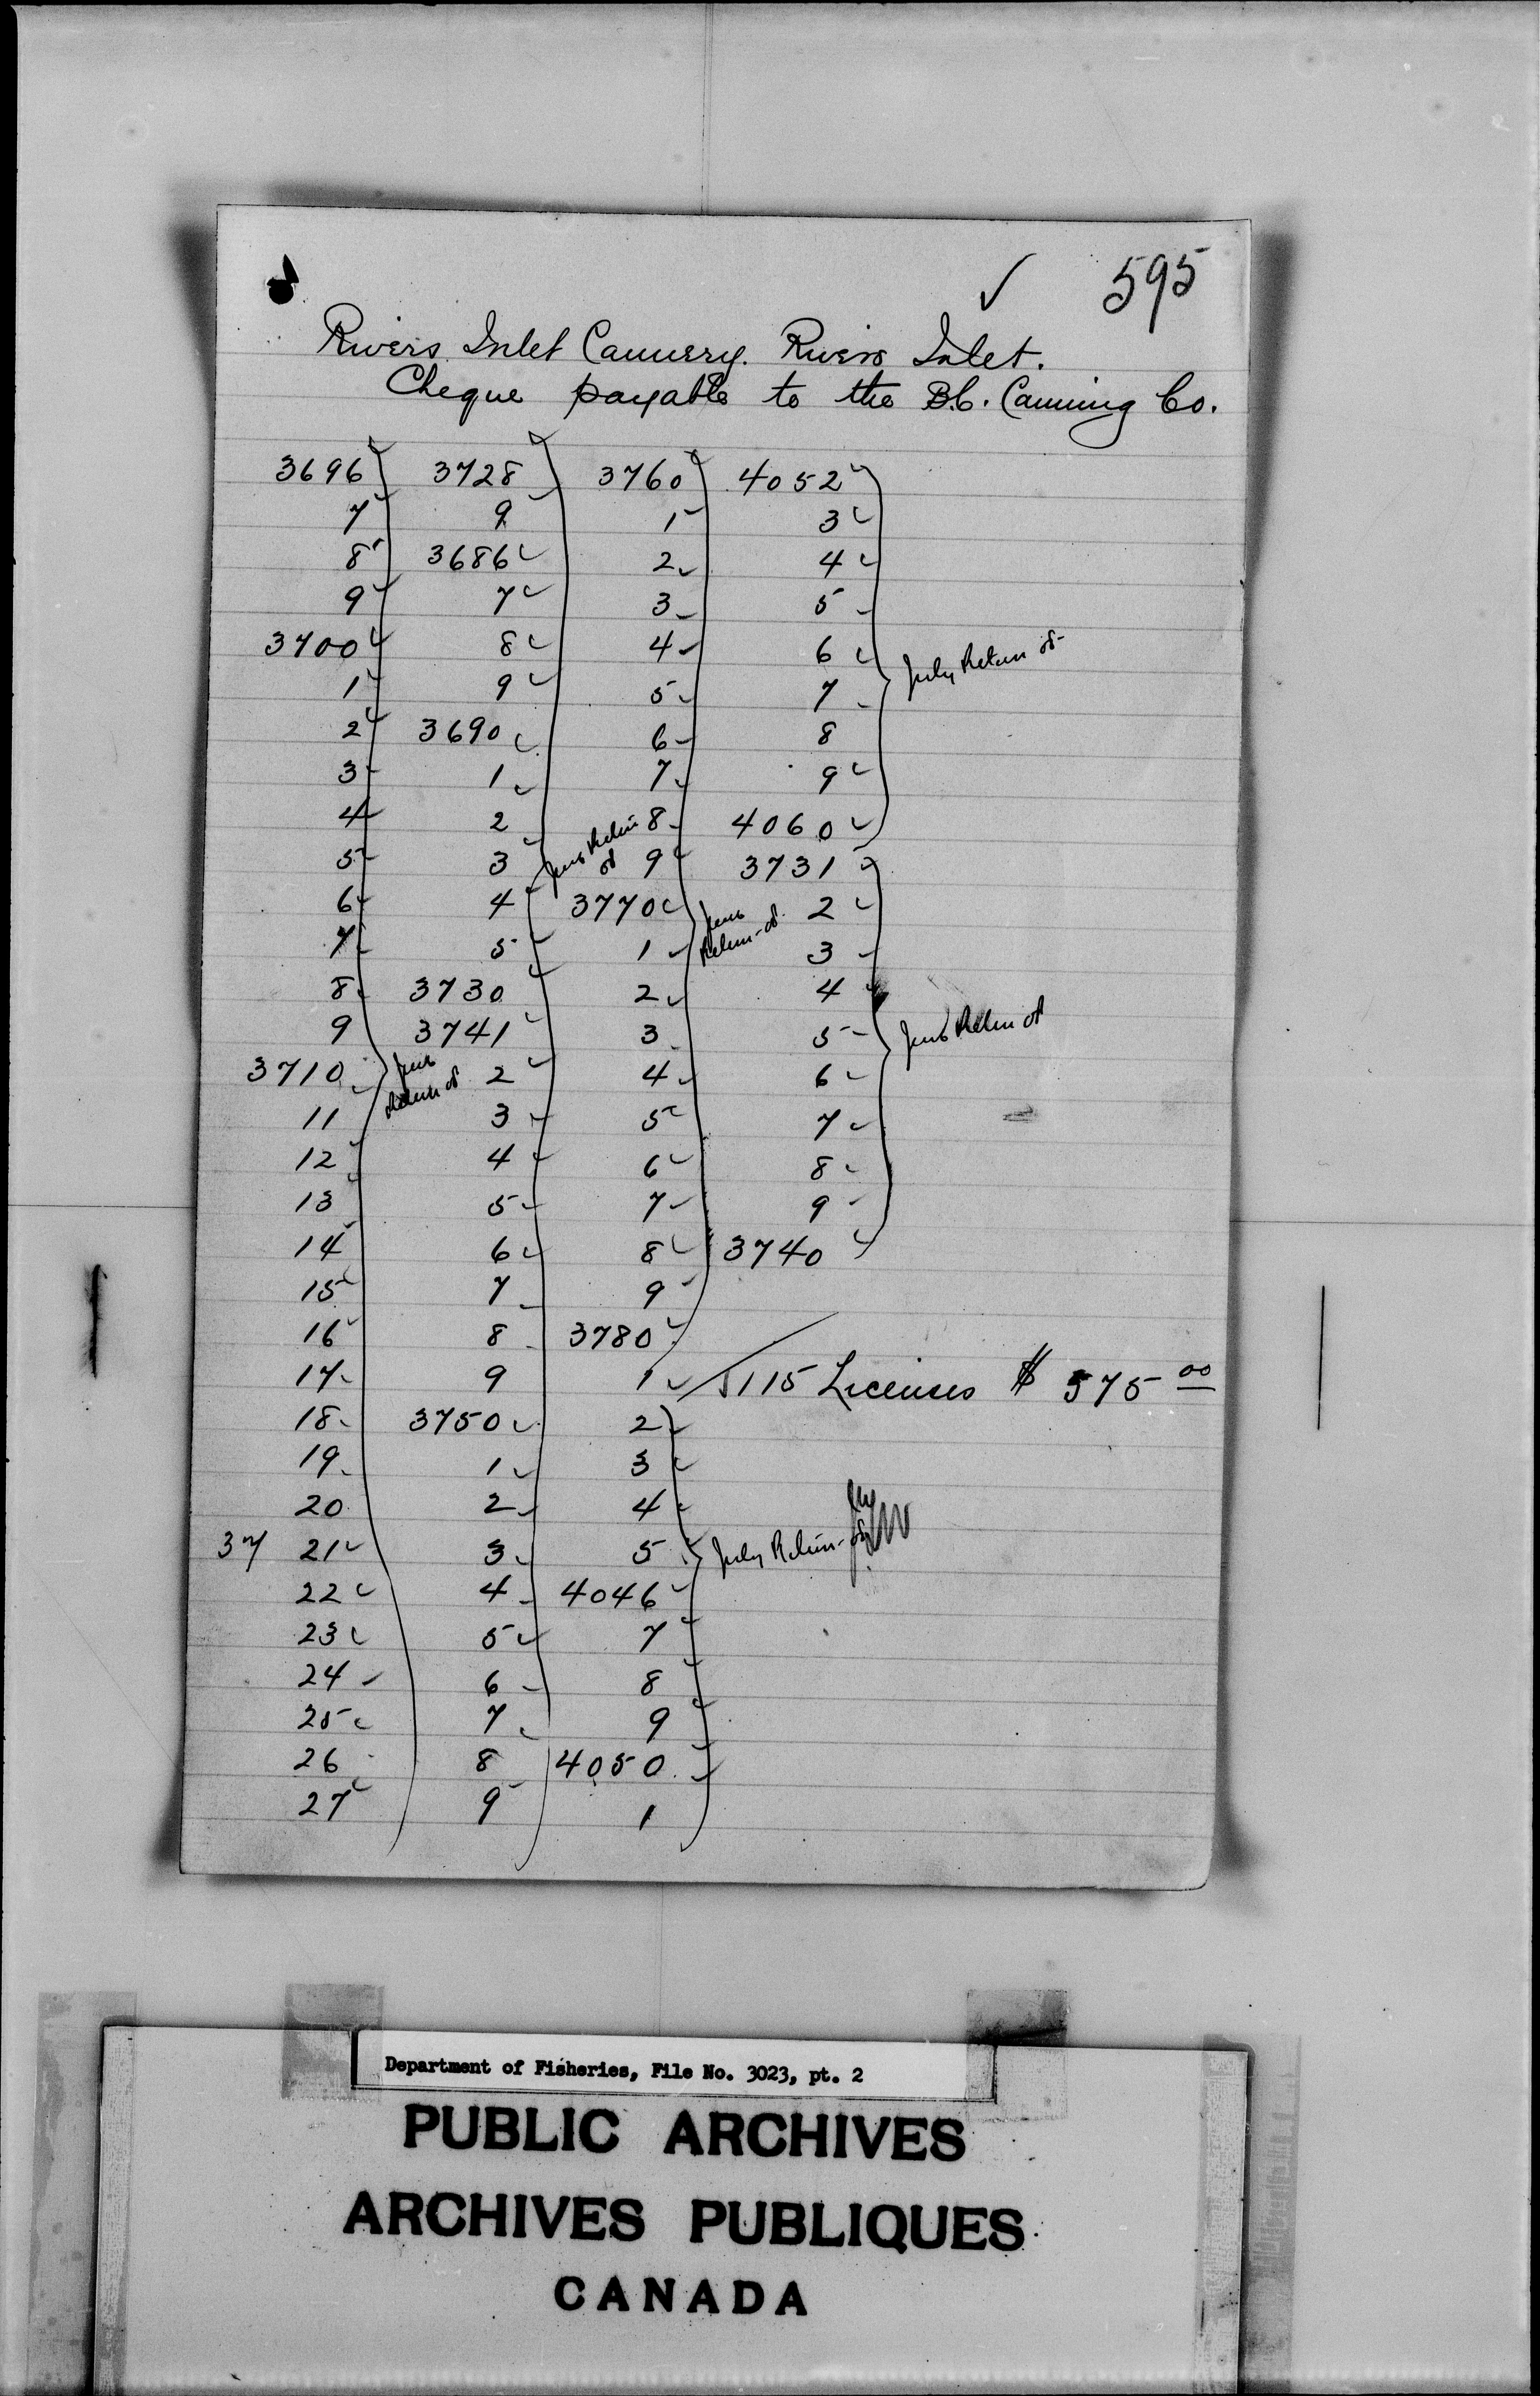 595
Rivers Inlet Cannery. Rivers Inlet.
Cheque payable to the B.C. Canning Co.
3696 3728 3760 4052
7 9 1 3
8 3686 2 4
9 7 3 5
3700 8 4 6
1 9 5 7
July Return
2 3690 6 8
3 1 7 9
4 2 8 4060
5 3 9 3731
6 4 3770 2
7 5 1 3
8 3730 2 4
9 3741 3 5
3710 2 4 6
11 3 5 7
12 4 6 8
13 5 7 9
14 6 8 3740
15 7 9
16 8 3780
17 9 1 115 Licenses $575 00
18 3750 2
19 1 3
20 2 4
37 21 3 5 July Return
22 4 4046
23 5 7
24 6 8
25 7 9
26 8 4050
27 9 1
Department of Fisheries, File No. 3023, pt. 2
PUBLIC ARCHIVES
ARCHIVES PUBLIQUES
CANADA